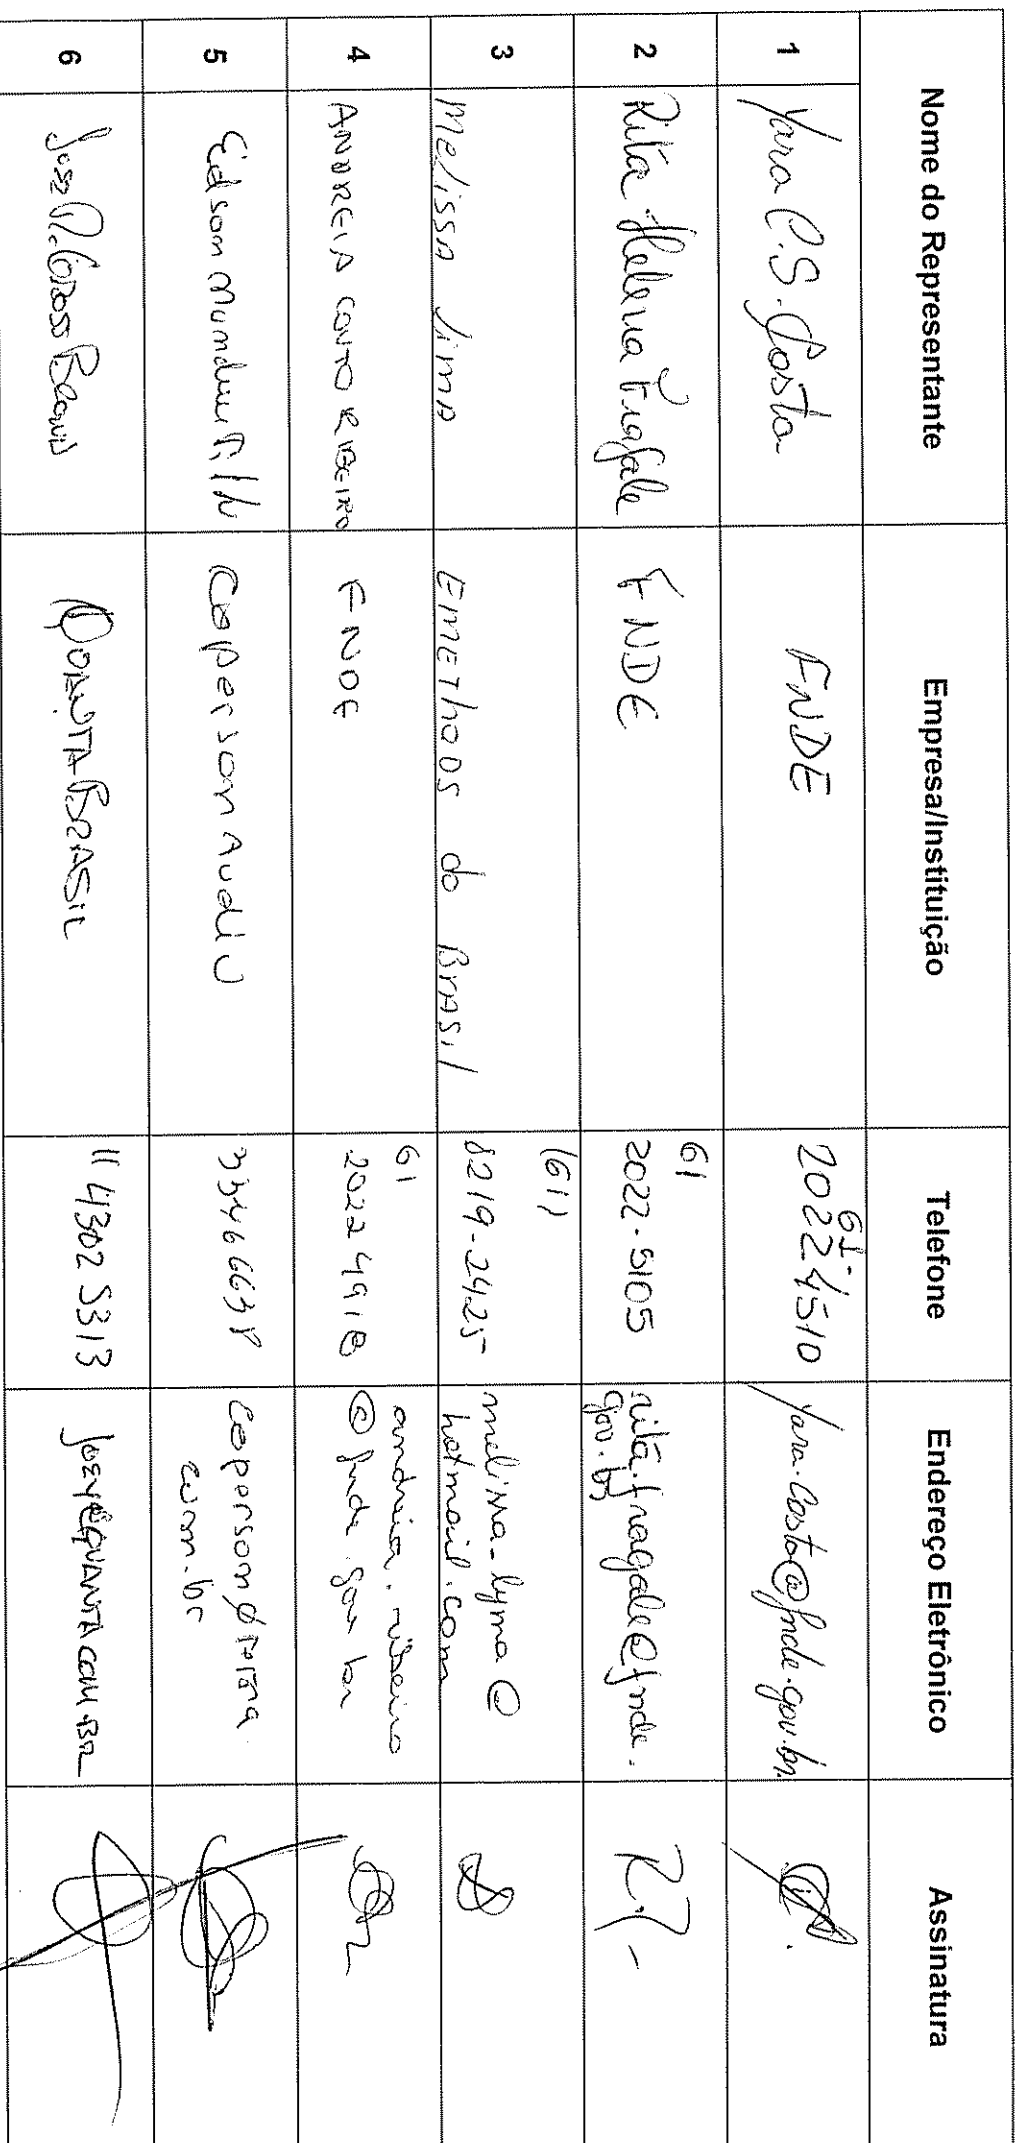 Nome do Representante Empresa/Instituição Telefone Endereço Eletrônico Assinatura
1 Yara C.S. Costa FNDE 61- 20224510 yara.costa@fnde.gov.br
2 Rita Helena Fragale FNDE 61 2022-5105 rita.fragale@fnde.
gov.br
3 Melissa Lima Emethods do Brasil (61) 8219-2425 melissa-lyma@
hotmail.com
4 ANDREIA COUTO RIBEIRO FNDE 61 20224918 andreia.ribeiro
@fnde.gov.br
5 Edson Coperson Audio 33466638 coperson@
com.br
6 11 4302 5313